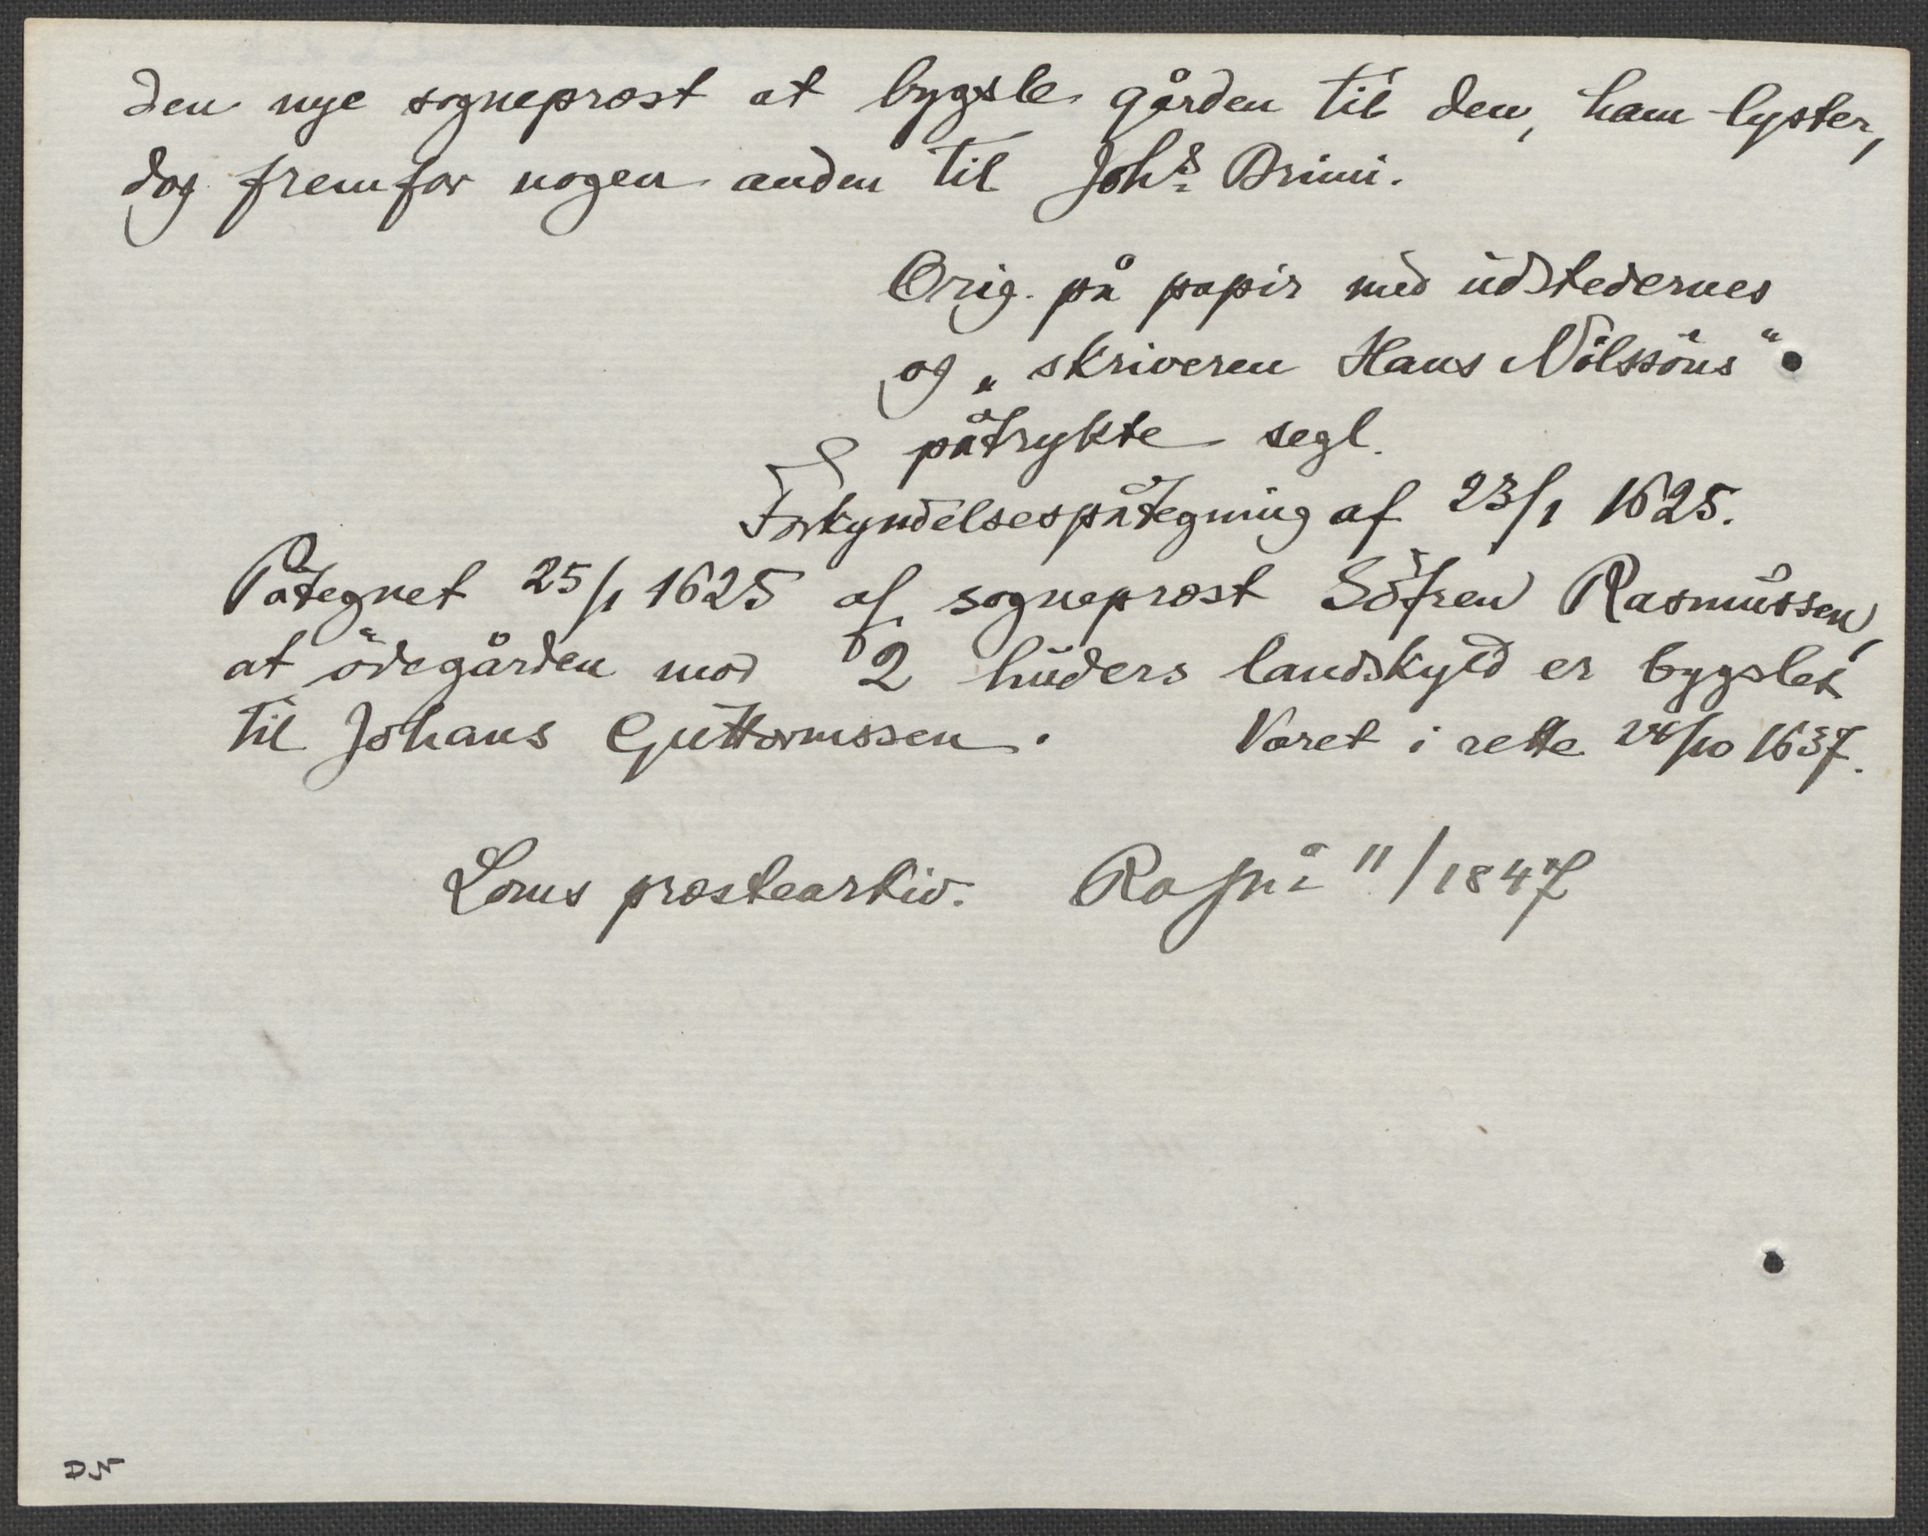 den nye sogneprost at bygsle gården til den, ham lyster,
dog fremfor nogen anden til Johs Brimi.
Orig. på papir med udstedernes
og „skriveren Hans Nilssöns“
påtrykte segl.
Forkyndelsespåtegning af 23/1 1625.
Påtegnet 25/1 1625 af sogneprost Söfren Rasmussen,
at ödegården mod 2 huders landskyld er bygslet
til Johans Guttormssen. Været i rette 24/10 1637.
Loms prostearkiv. 11/1847
DN